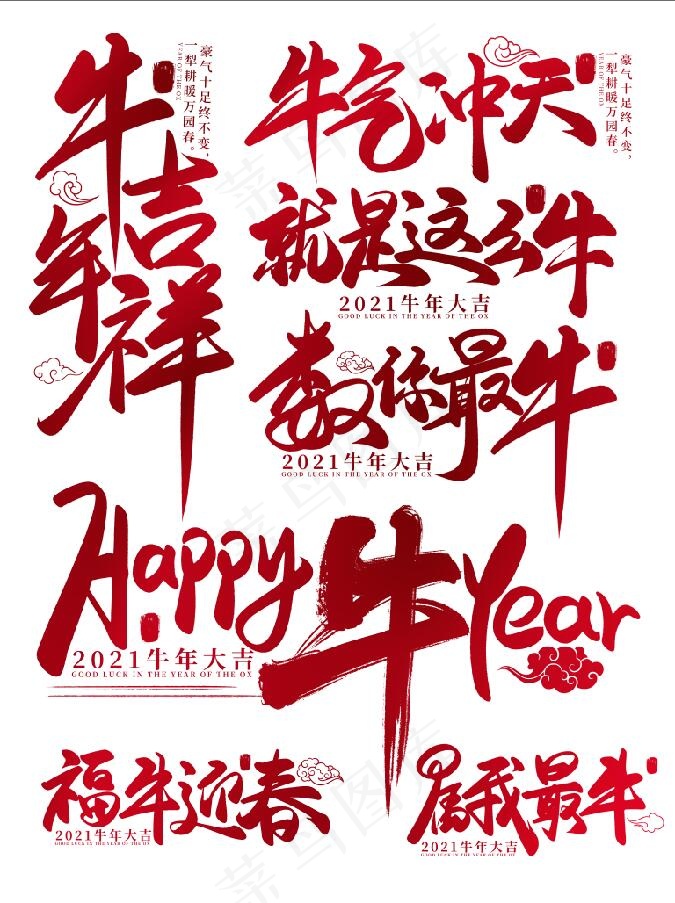 牛年吉祥
豪气十足终不变，
一犁耕暖万园春。
YEAR OF THE OX
牛气冲天
豪气十足终不变，
一犁耕暖万园春。
YEAR OF THE OX
就是这么牛
2021牛年大吉
GOOD LUCK IN THE YEAR OF THE OX
数你最牛
2021牛年大吉
GOOD LUCK IN THE YEAR OF THE OX
Happy牛Year
2021牛年大吉
GOOD LUCK IN THE YEAR OF THE OX
福牛迎春
2021牛年大吉
GOOD LUCK IN THE YEAR OF THE OX
属我最牛
2021牛年大吉
GOOD LUCK IN THE YEAR OF THE OX
菜鸟图库